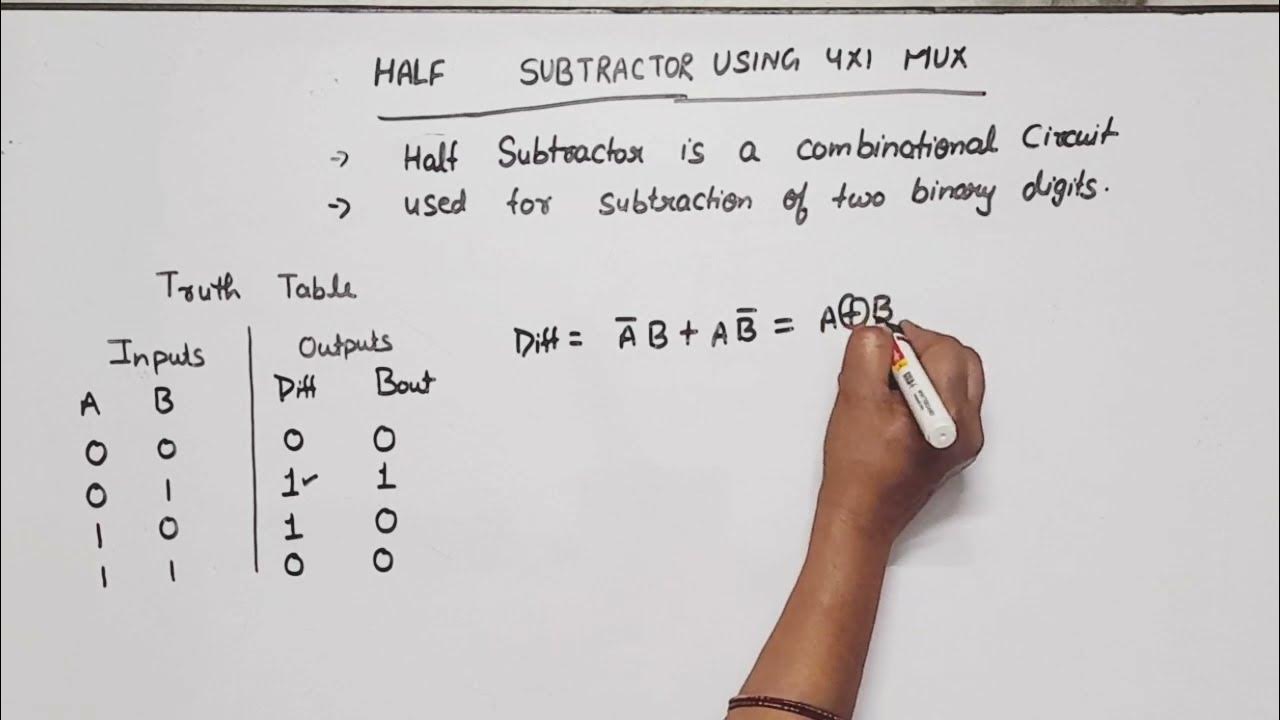 HALF SUBTRACTOR USING 4X1 MUX
-> Half Subtractor is a combinational Circuit
-> used for subtraction of two binary digits.
Truth Table
Inputs Outputs
A B Diff Bout
0 0 0 0
0 1 1✓ 1
1 0 1 0
1 1 0 0
Diff = A̅ B + A B̅ = A ⊕ B